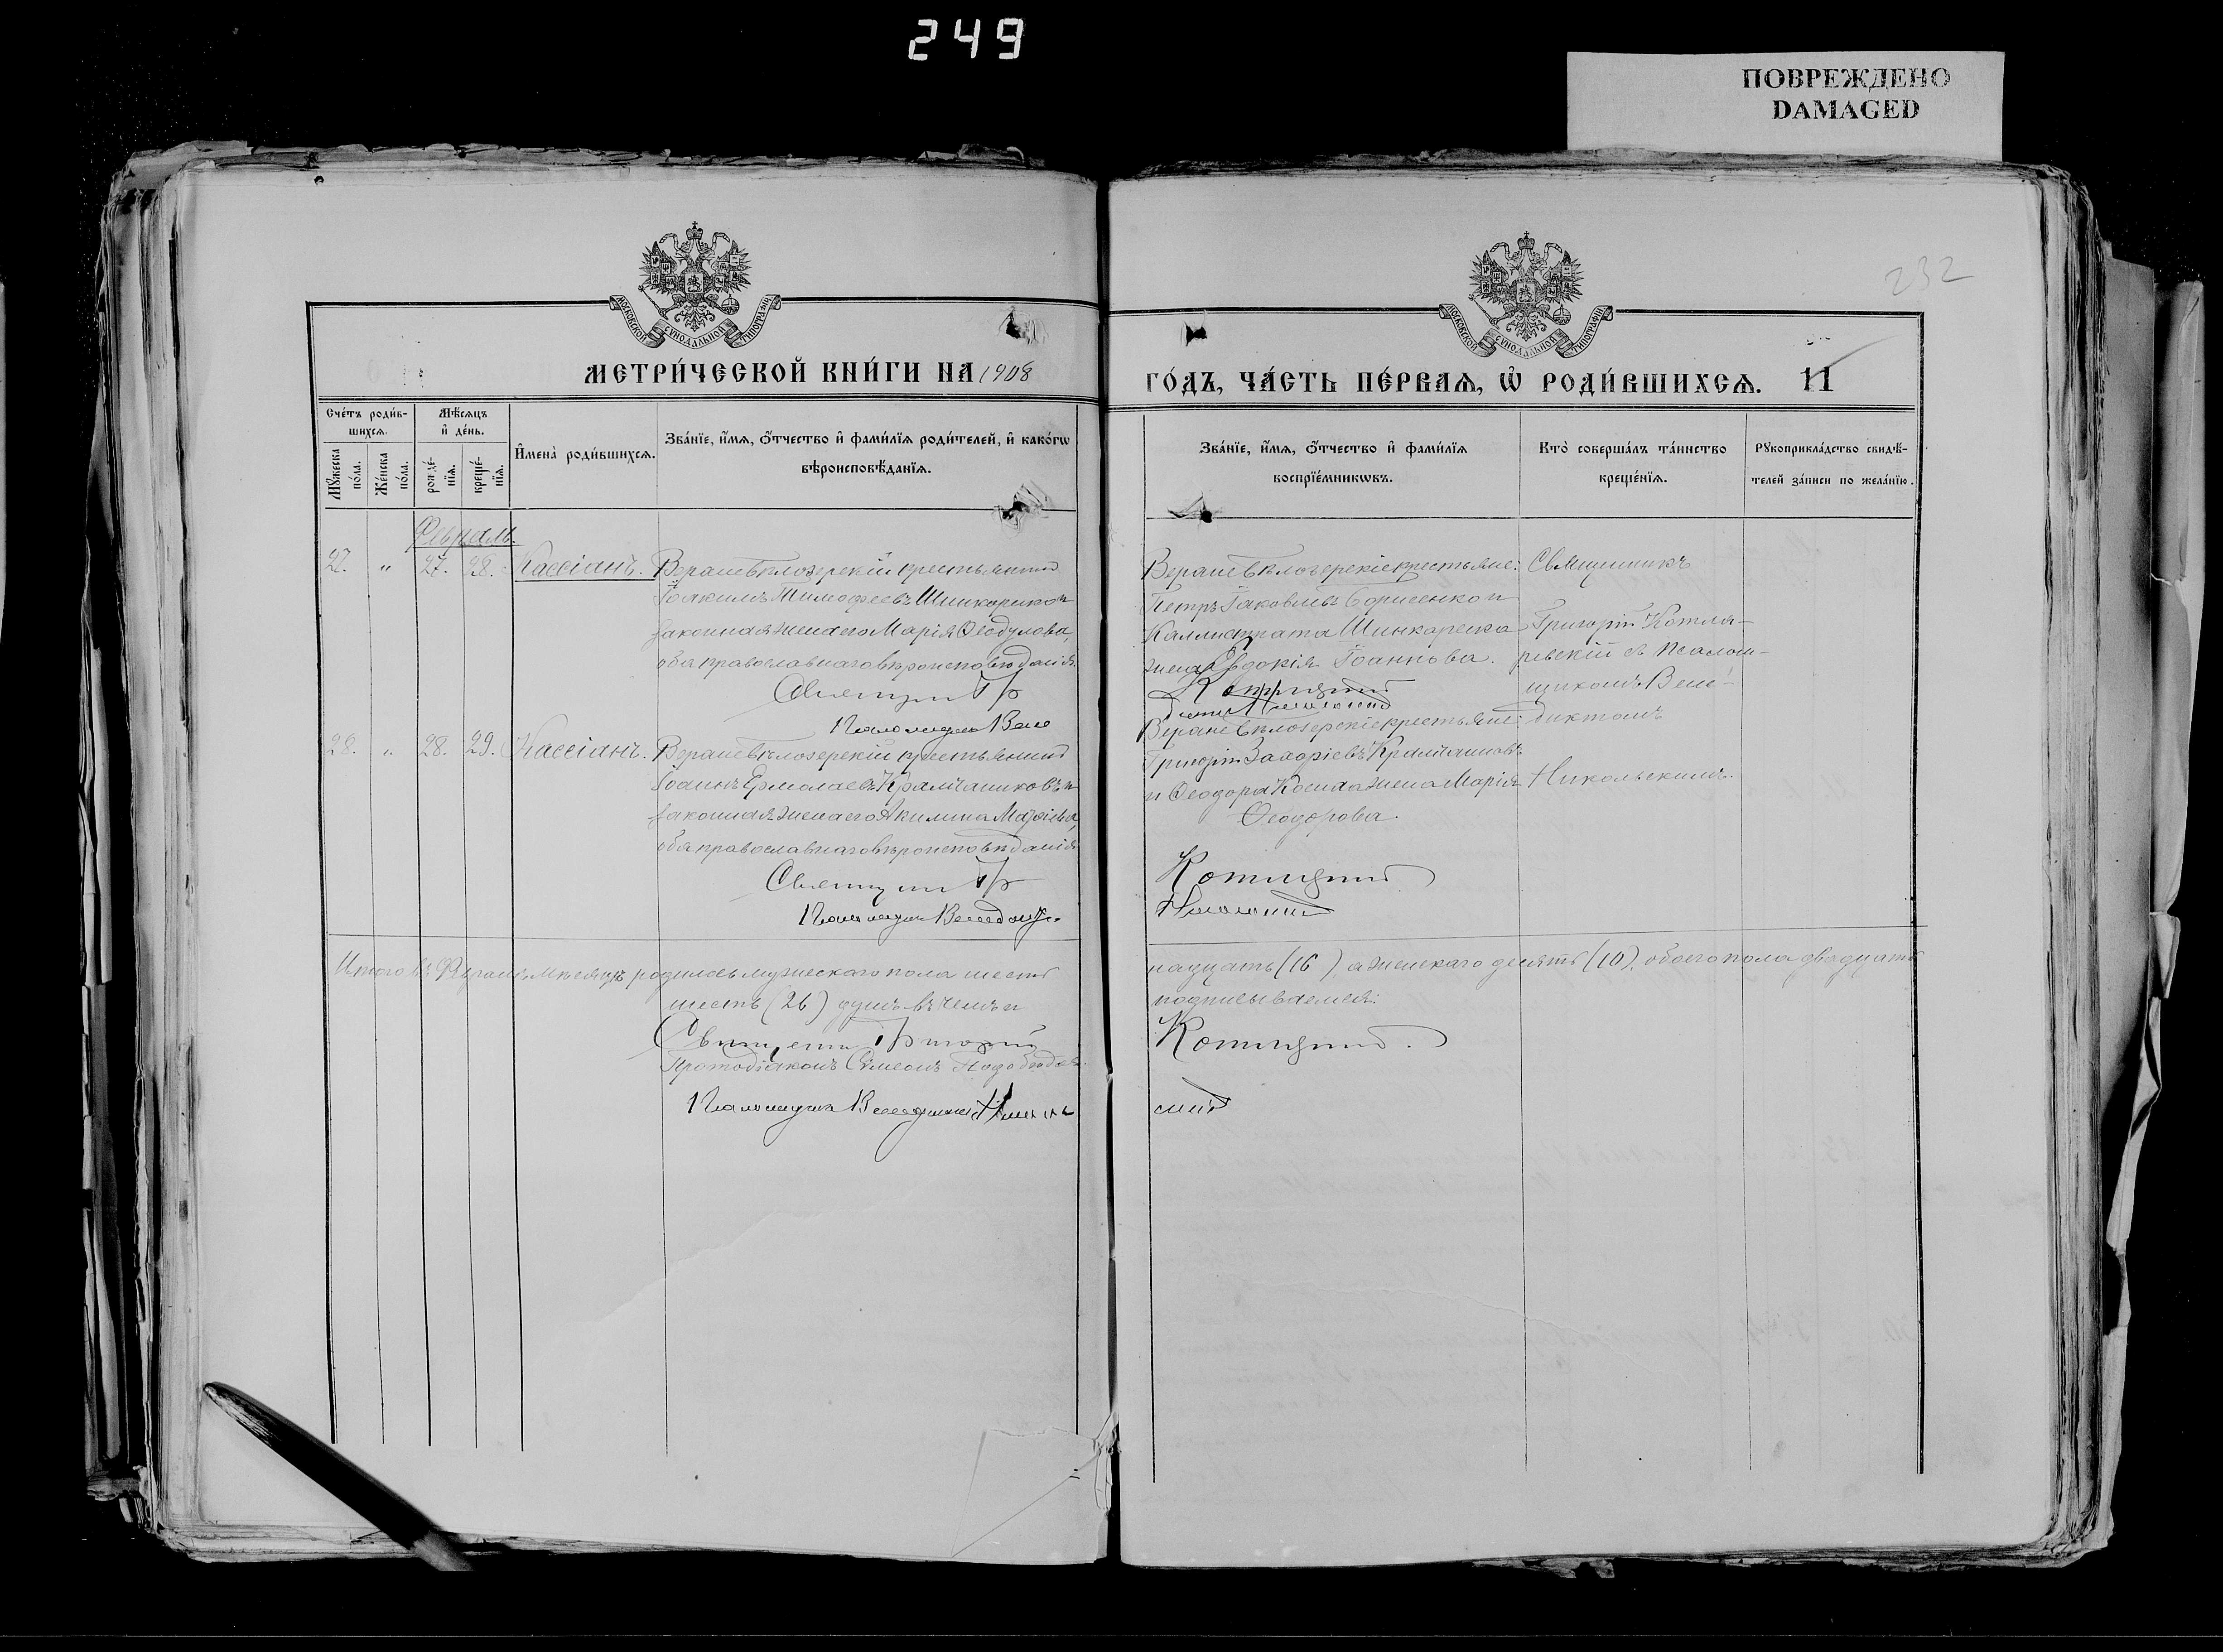 249
ПОВРЕЖДЕНО
DAMAGED
232
МОСКОВСКОЙ СѴНОДАЛЬНОЙ ТИПОГРАФІИ
МОСКОВСКОЙ СѴНОДАЛЬНОЙ ТИПОГРАФІИ
МЕТРИ́ЧЕСКОЙ КНИ́ГИ НА 1908
ГО́ДЪ, ЧА́СТЬ ПЕ́РВАЯ, Ѡ҆ РОДИ́ВШИХСЯ. 11
Сче́тъ роди́в-
шихся.
Мѣ́сяцъ
и҆ де́нь.
Мꙋ́жеска по́ла.
Же́нска по́ла.
рожде́-
нїя.
креще́-
нїя.
И҆мена̀ роди́вшихся.
Зва́нїе, и҆́мя, ѻ҆́тчество и҆ фами́лїя роди́телей, и҆ како́гѡ
вѣроисповѣ́данїя.
Зва́нїе, и҆́мя, ѻ҆́тчество и҆ фами́лїя
воспрїе́мникѡвъ.
Кто̀ соверша́лъ та́инство
креще́нїя.
Рꙋкоприкла́дство свидѣ́-
телей за́писи по жела́нїю.
Февраль.
27. „ 27. 28. Кассіанъ. Верхнебѣлозерскій крестьянинъ
Іоакимъ Тимофеевъ Шинкаренко и
законная жена его Марія Ѳеодулова,
оба православнаго вѣроисповѣданія.
Священникъ Гр
Псаломщикъ Вене
Верхнебѣлозерскіе крестьяне:
Петръ Іаковлевъ Борисенко и
Каллистрата Шинкаренка
жена Евдокія Іоаннова.
Котлярскій
диктъ Никольскій
Священникъ
Григорій Котля-
ревскій съ псалом-
щикомъ Вене-
диктомъ
Никольскимъ.
28. „ 28. 29. Кассіанъ. Верхнебѣлозерскій крестьянинъ
Іоаннъ Ермолаевъ Крамчаниковъ и
законная жена его Акилина
оба православнаго вѣроисповѣданія.
Священникъ Гр
Псаломщикъ Венедиктъ
Верхнебѣлозерскіе крестьяне:
Григорій Захаріевъ Крамчаниковъ
и Ѳеодора жена Марія
Ѳеодорова.
Котлярскій
Никольскій
Итого въ Февралѣ мѣсяцѣ родилось мужескаго пола шест
надцать (16), а женскаго десять (10), обоего пола двадцать
шесть (26) душъ въ чемъ и
подписываемся:
Священникъ Григорій
Котлярскій.
Протодіаконъ Сѵмеонъ
Псаломщикъ Венедиктъ Николь
скій